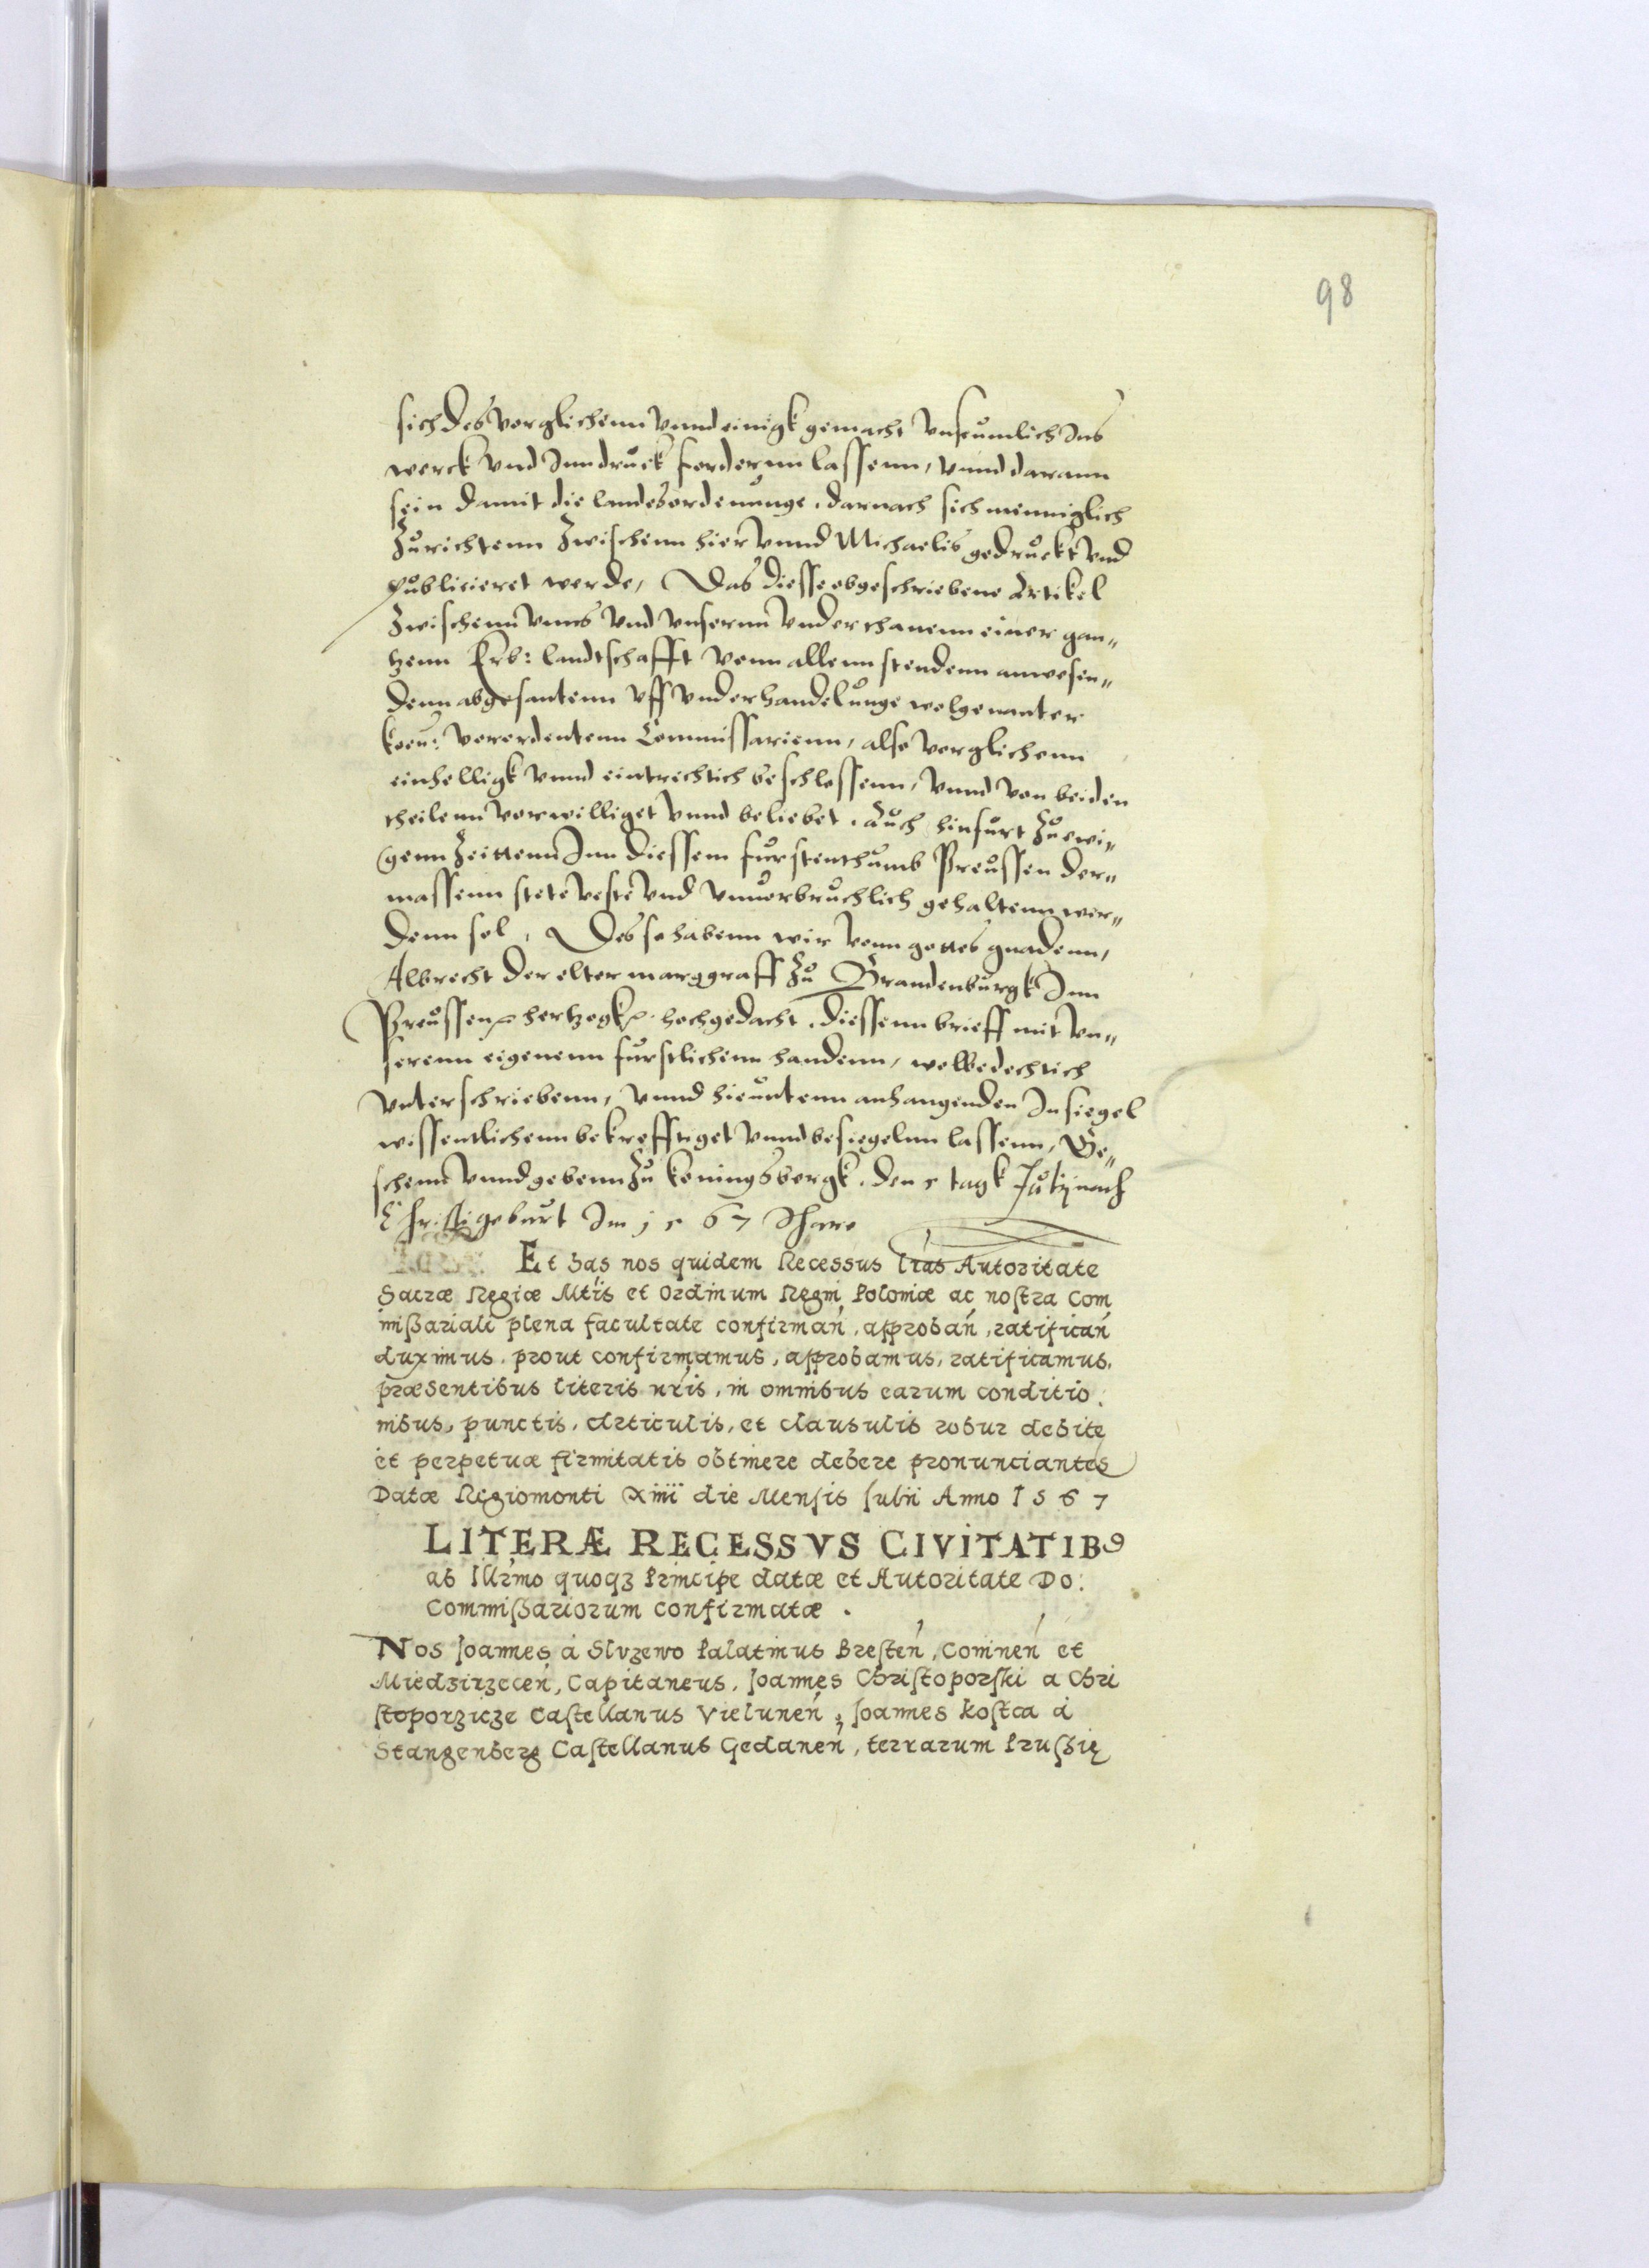 98
sich des vorglichenn vnnd einigk gemacht vnseumlich Ins
werck vnd Inn druck fordernn lassenn, vnnd darann
sein damit die landesordenunge. darnach sich menniglich
Zurichtenn Zwischenn hier vnnd Michaelis gedruckt vnd
publicieret werde, Das diesse obgeschriebene Artikel
Zwischenn vnns vnd vnsernn vnderthanenn einer gan„
tzenn Erb: landtschafft vonn allenn stendenn anwesen„
denn abgesantenn vff vnderhandelunge wolgenanter
koen: verordentenn Commissarienn, also vorglichenn
einhelligk vnnd eintrechtich beschlossenn, vnnd von beiden
theilenn vorwilliget vnnd beliebet. Auch hinfurt Zu ewi„
genn Zeittenn Inn diessem furstenthumb Preussen der„
massenn stete veste vnd vnuorbruchlich gehaltenn wer„
denn sol, Des so habenn wir vonn gottes gnadenn,
Albrecht der elter marggraff Zu Brandenburgk Inn
Preussen hertzogk hochgedacht. diessenn brieff mit vn„
serenn eigenenn furstlichenn handenn, wolbedechtich
vnterschriebenn, vnnd hieuntenn anhangenden Insiegel
wissentlichenn bekrefftiget vnnd besiegelnn lassenn, Ge„
schenn vnnd gebenn Zu koningsbergk. den 5 tagk Julij nach
Christi geburt Im 1567 Ihare
Et has nos quidem Recessus lras Autoritate
Sacræ Regiæ Mtis et Ordinum Regni Poloniæ ac nostra Com
missariali plena facultate confirman, approban, ratifican
duximus. prout confirmamus, approbamus, ratificamus,
præsentibus literis nris, in omnibus earum conditio:
nibus, punctis, articulis, et clausulis robur debite
et perpetuæ firmitatis obtinere debere pronunciantes
Datæ Regiomonti Xiiii die Mensis Iulii Anno 1567
LITERÆ RECESSVS CIVITATIB9
ab Illrmo quoqȝ Principe datæ et Autoritate Do:
Commissariorum confirmatæ.
Nos Joannes à Sluzewo Palatinus Bresten, Coninen et
Miedzirzecen, Capitaneus, Joannes Christoporski a Chri
stoporzicze Castellanus Vielunen, Joannes Kostca à
Stangenberg Castellanus Gedanen, terrarum Prussię